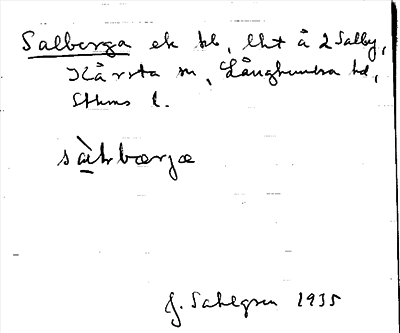 Salberga ek hl, lht å 2 Salby,
Kårsta sn, Långhundra hd,
Sthms l.
sàlbærjæ
J. Sahlgren 1935